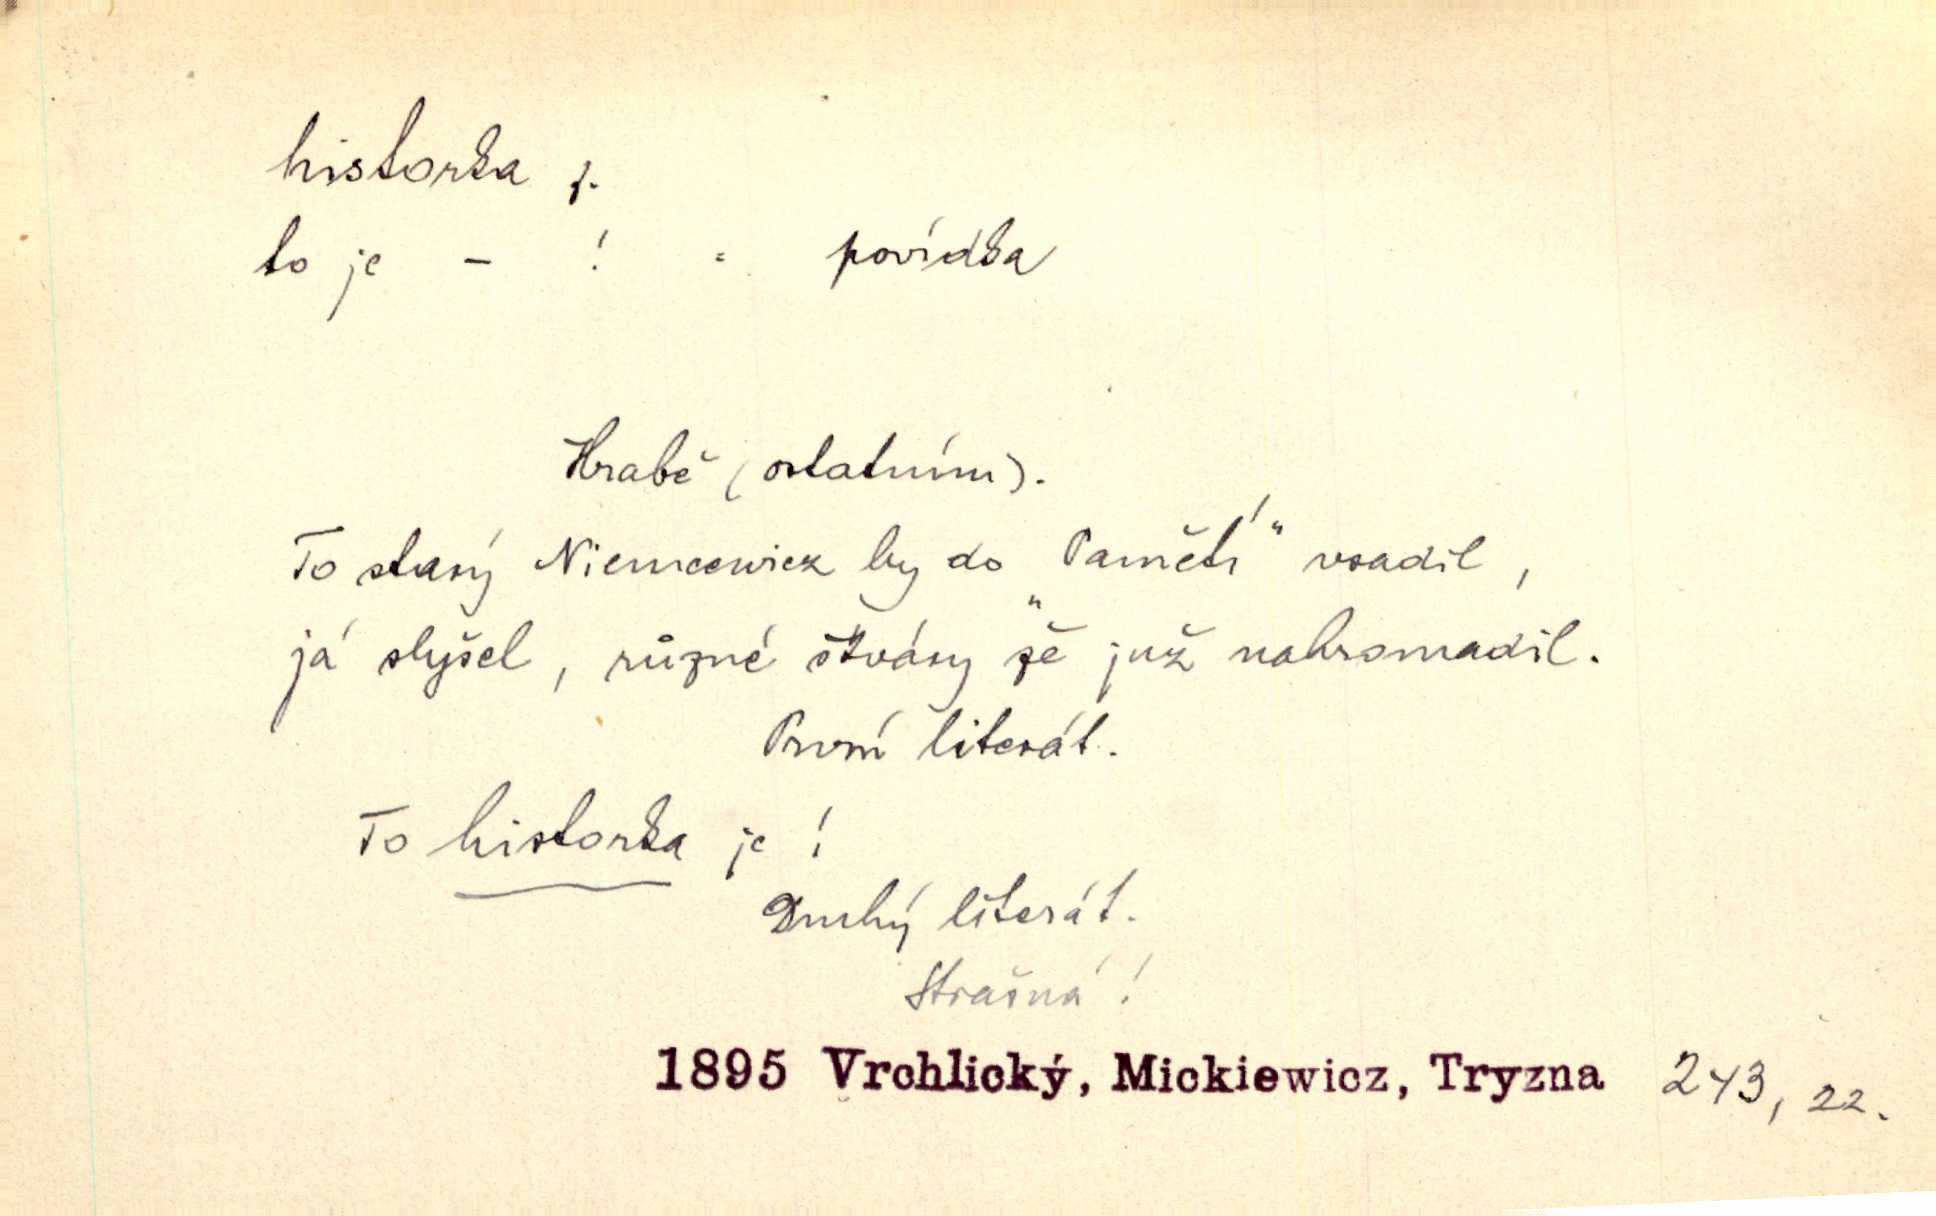 historka f.
to je – ! = povídka
Hrabě (ostatním).
To starý Niemcewicz by do „Pamětí“ vsadil,
já slyšel, různé škváry že již nahromadil.
První literát.
To historka je!
Druhý literát.
Strašná!
1895 Vrchlický, Mickiewicz, Tryzna 243, 22.